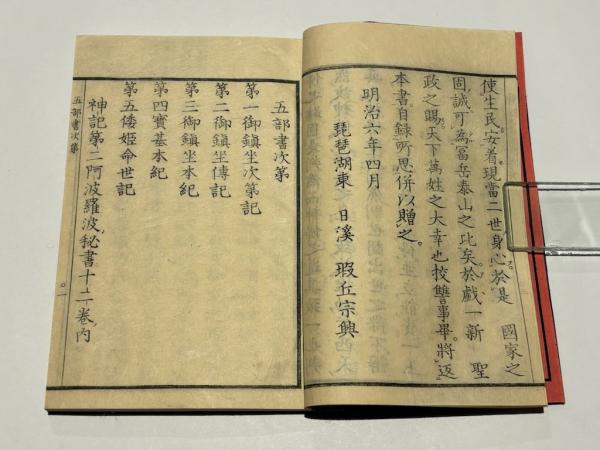 使生民安着現當二世身心於是　國家之
固誠可為冨岳泰山之比矣於戲一新　聖
政之賜天下萬姓之大幸也挍讐事畢將返
本書自録所思併以贈之
明治六年四月
琵琶湖東　日溪　瑕丘宗興
五部書次第
第一御鎮坐次第記
第二御鎮坐傳記
第三御鎮坐本紀
第四寳基本紀
第五倭姫命世記
神記第二阿波羅波秘書十二巻内
五部書次第